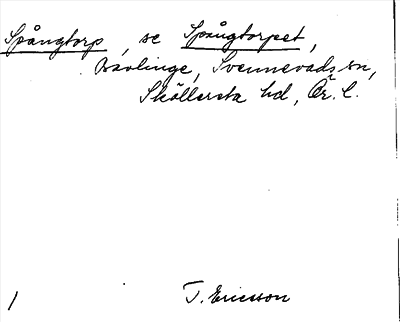 Spångtorp, se Spångtorpet,
Bavlinge, Svennevads sn,
Sköllersta hd, Ör. l.
T. Ericsson